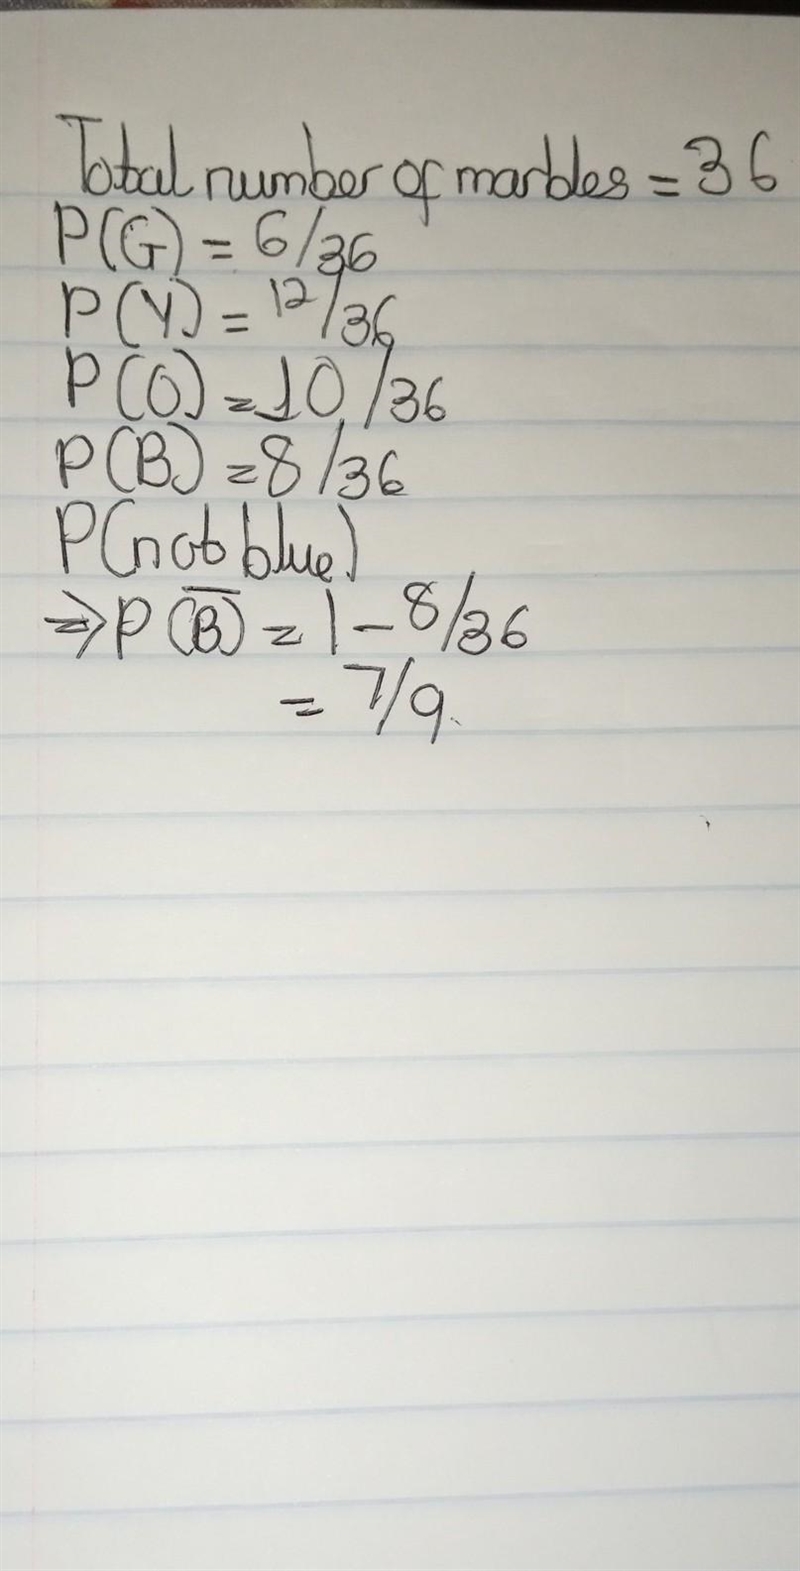 Total number of marbles = 36
P(G) = 6/36
P(Y) = 12/36
P(O) = 10/36
P(B) = 8/36
P(not blue)
⇒ P(B̅) = 1 - 8/36
= 7/9.